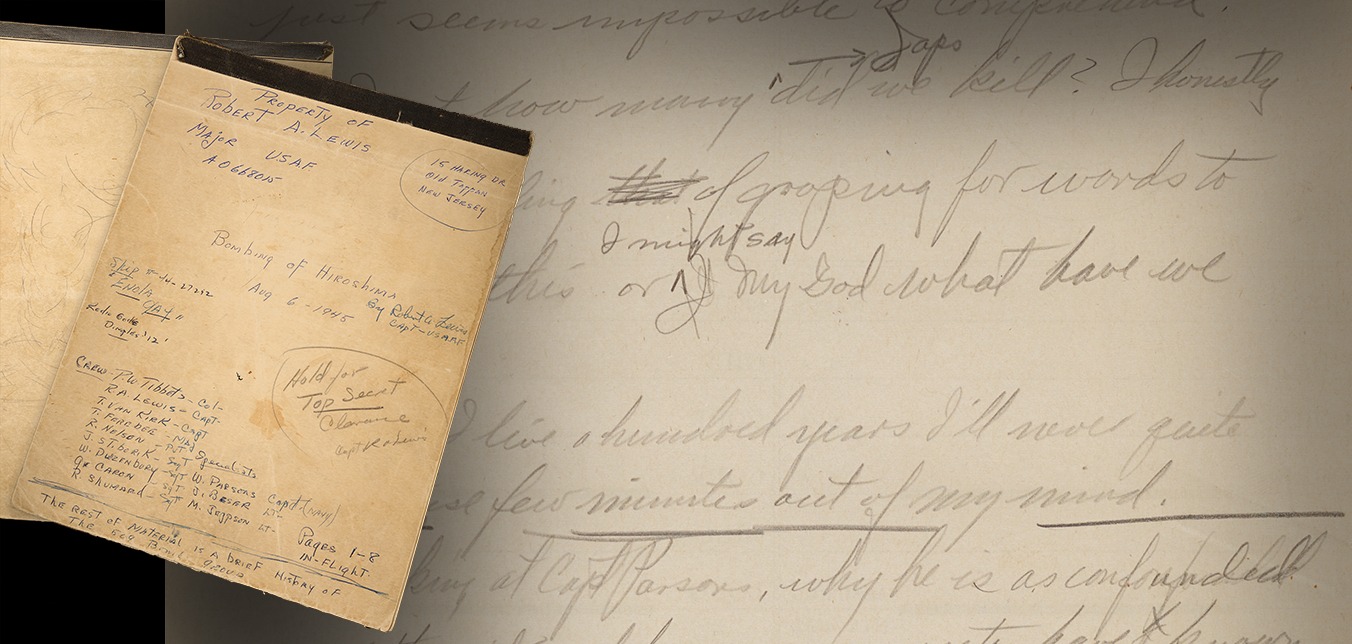 PROPERTY OF
ROBERT A. LEWIS
MAJOR USAF
AO668015
15 HARING DR
OLD TAPPAN
NEW JERSEY
BOMBING OF HIROSHIMA
AUG 6 - 1945
By Robert A. Lewis
CAPT - USAAF
Ship
"ENOLA
GAY"
Dimples '12'
Hold for
Top Secret
Clearance
Capt R A Lewis
CREW - P.W TIBBETS - COL -
R.A. LEWIS - CAPT -
T. VAN KIRK - CAPT
T. FEREBEE - MAJ
R. NELSON - PVT
J. STIBORIK - SGT
W. DUZENBURY - SGT
G.R CARON - SGT
R. SHUMARD - SGT
Specialists
W. PARSONS CAPT (NAVY)
J. BESER LT -
M. JEPPSON LT -
PAGES 1-8
IN-FLIGHT.
THE REST OF MATERIAL IS A BRIEF HISTORY OF
THE 509 - BOMB GROUP
just seems impossible to comprehend.
Japs
how many did we kill? I honestly
of groping for words to
I might say
this or My God what have we
I live a hundred years I'll never quite
few minutes out of my mind.
at Capt Parsons, why he is as confounded